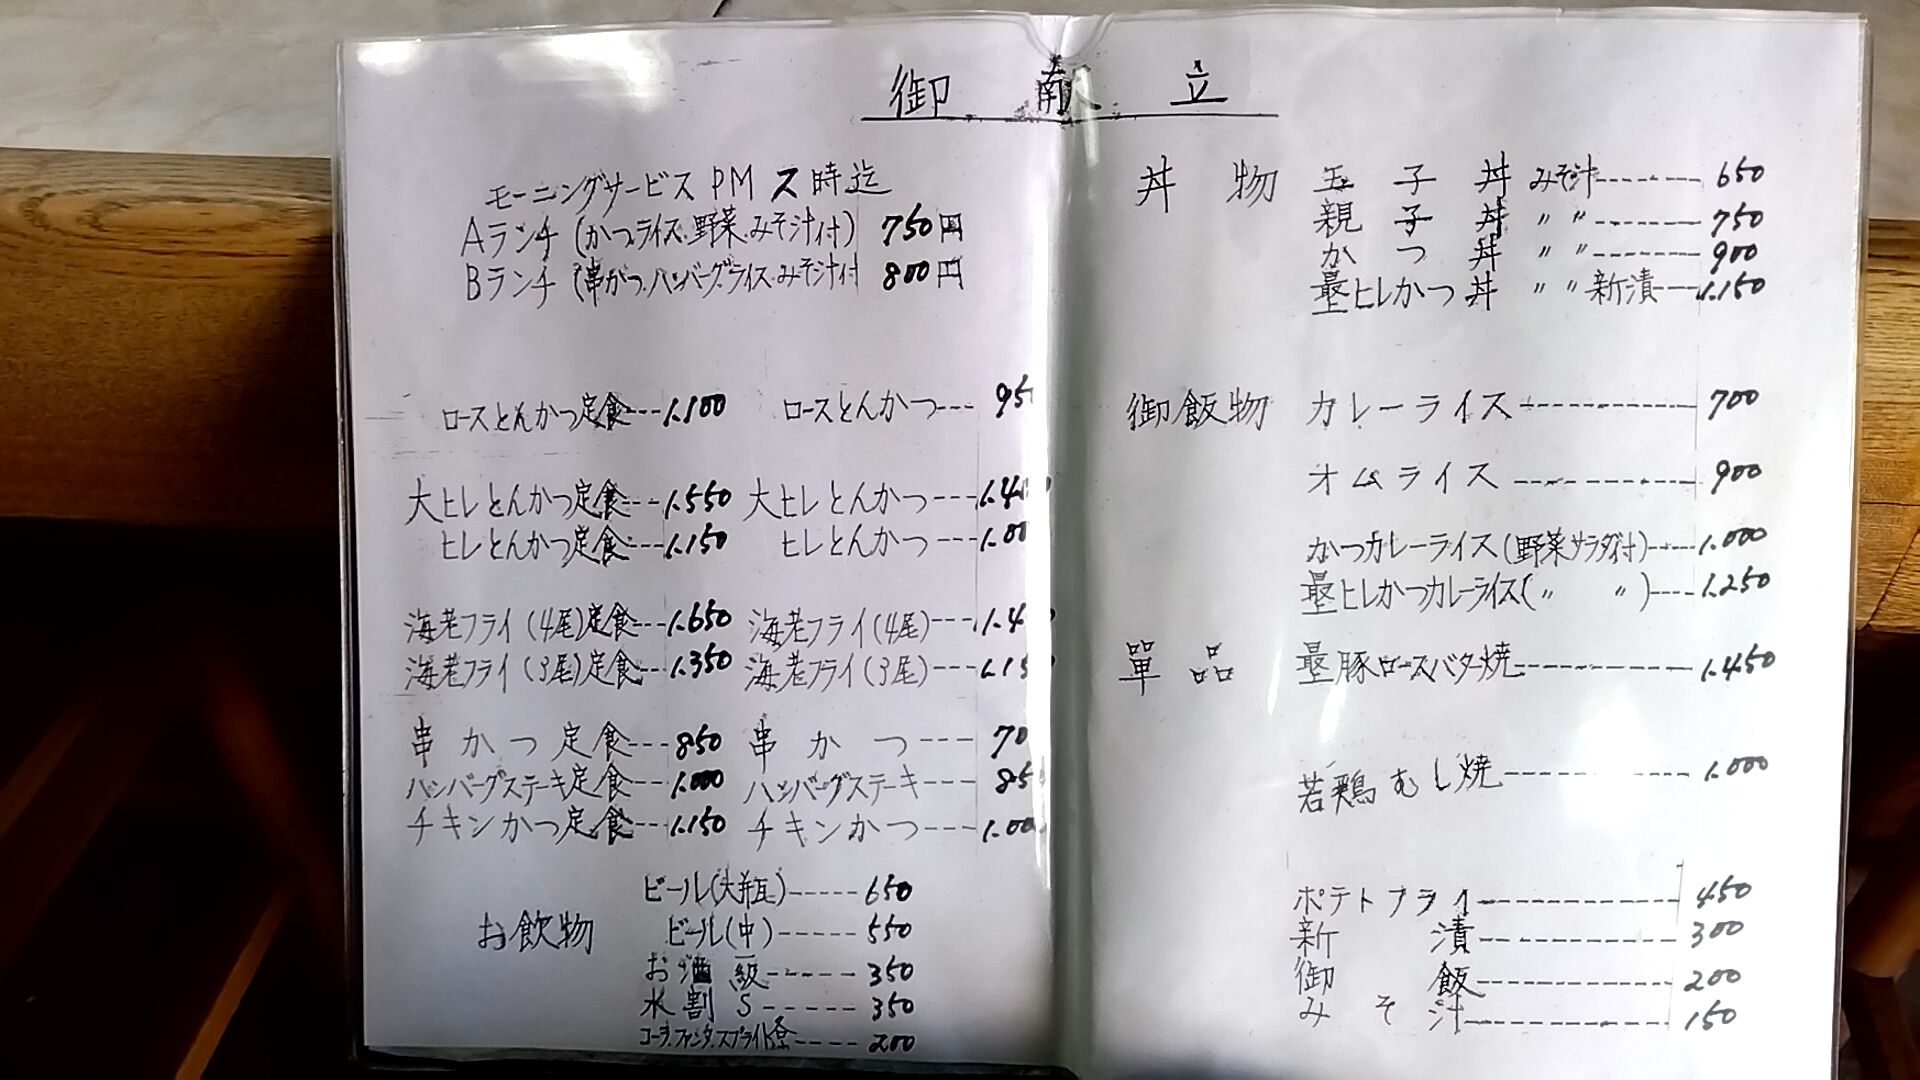 御献立
モーニングサービス PM 2時迄
Aランチ (かつ.ライス.野菜.みそ汁付) 750円
Bランチ (串かつ.ハンバーグ.ライス.みそ汁付 800円
ロースとんかつ定食---1.100 ロースとんかつ--- 95
大ヒレとんかつ定食---1.550 大ヒレとんかつ---1.4
ヒレとんかつ定食---1.150 ヒレとんかつ---1.00
海老フライ(4尾)定食---1.650 海老フライ(4尾)---1.4
海老フライ(3尾)定食---1.350 海老フライ(3尾)---1.15
串かつ定食---850 串かつ--- 70
ハンバーグステーキ定食---1.000 ハンバーグステーキ--- 85
チキンかつ定食---1.150 チキンかつ---1.00
お飲物
ビール(大瓶)-----650
ビール(中)-----550
お酒 級-----350
水割 S-----350
コーラ.ファンタ.スプライト----200
丼物 玉子丼 みそ汁-------650
親子丼 〃 〃-------750
かつ丼 〃 〃-------900
ヒレかつ丼 〃 〃 新漬---1.150
御飯物 カレーライス------------700
オムライス------------900
かつカレーライス(野菜サラダ付)----1.000
ヒレかつカレーライス(〃 〃)----1.250
單品 豚ロースバター焼------------1.450
若鶏むし焼------------1.000
ポテトフライ------------450
新漬------------300
御飯------------200
みそ汁------------150